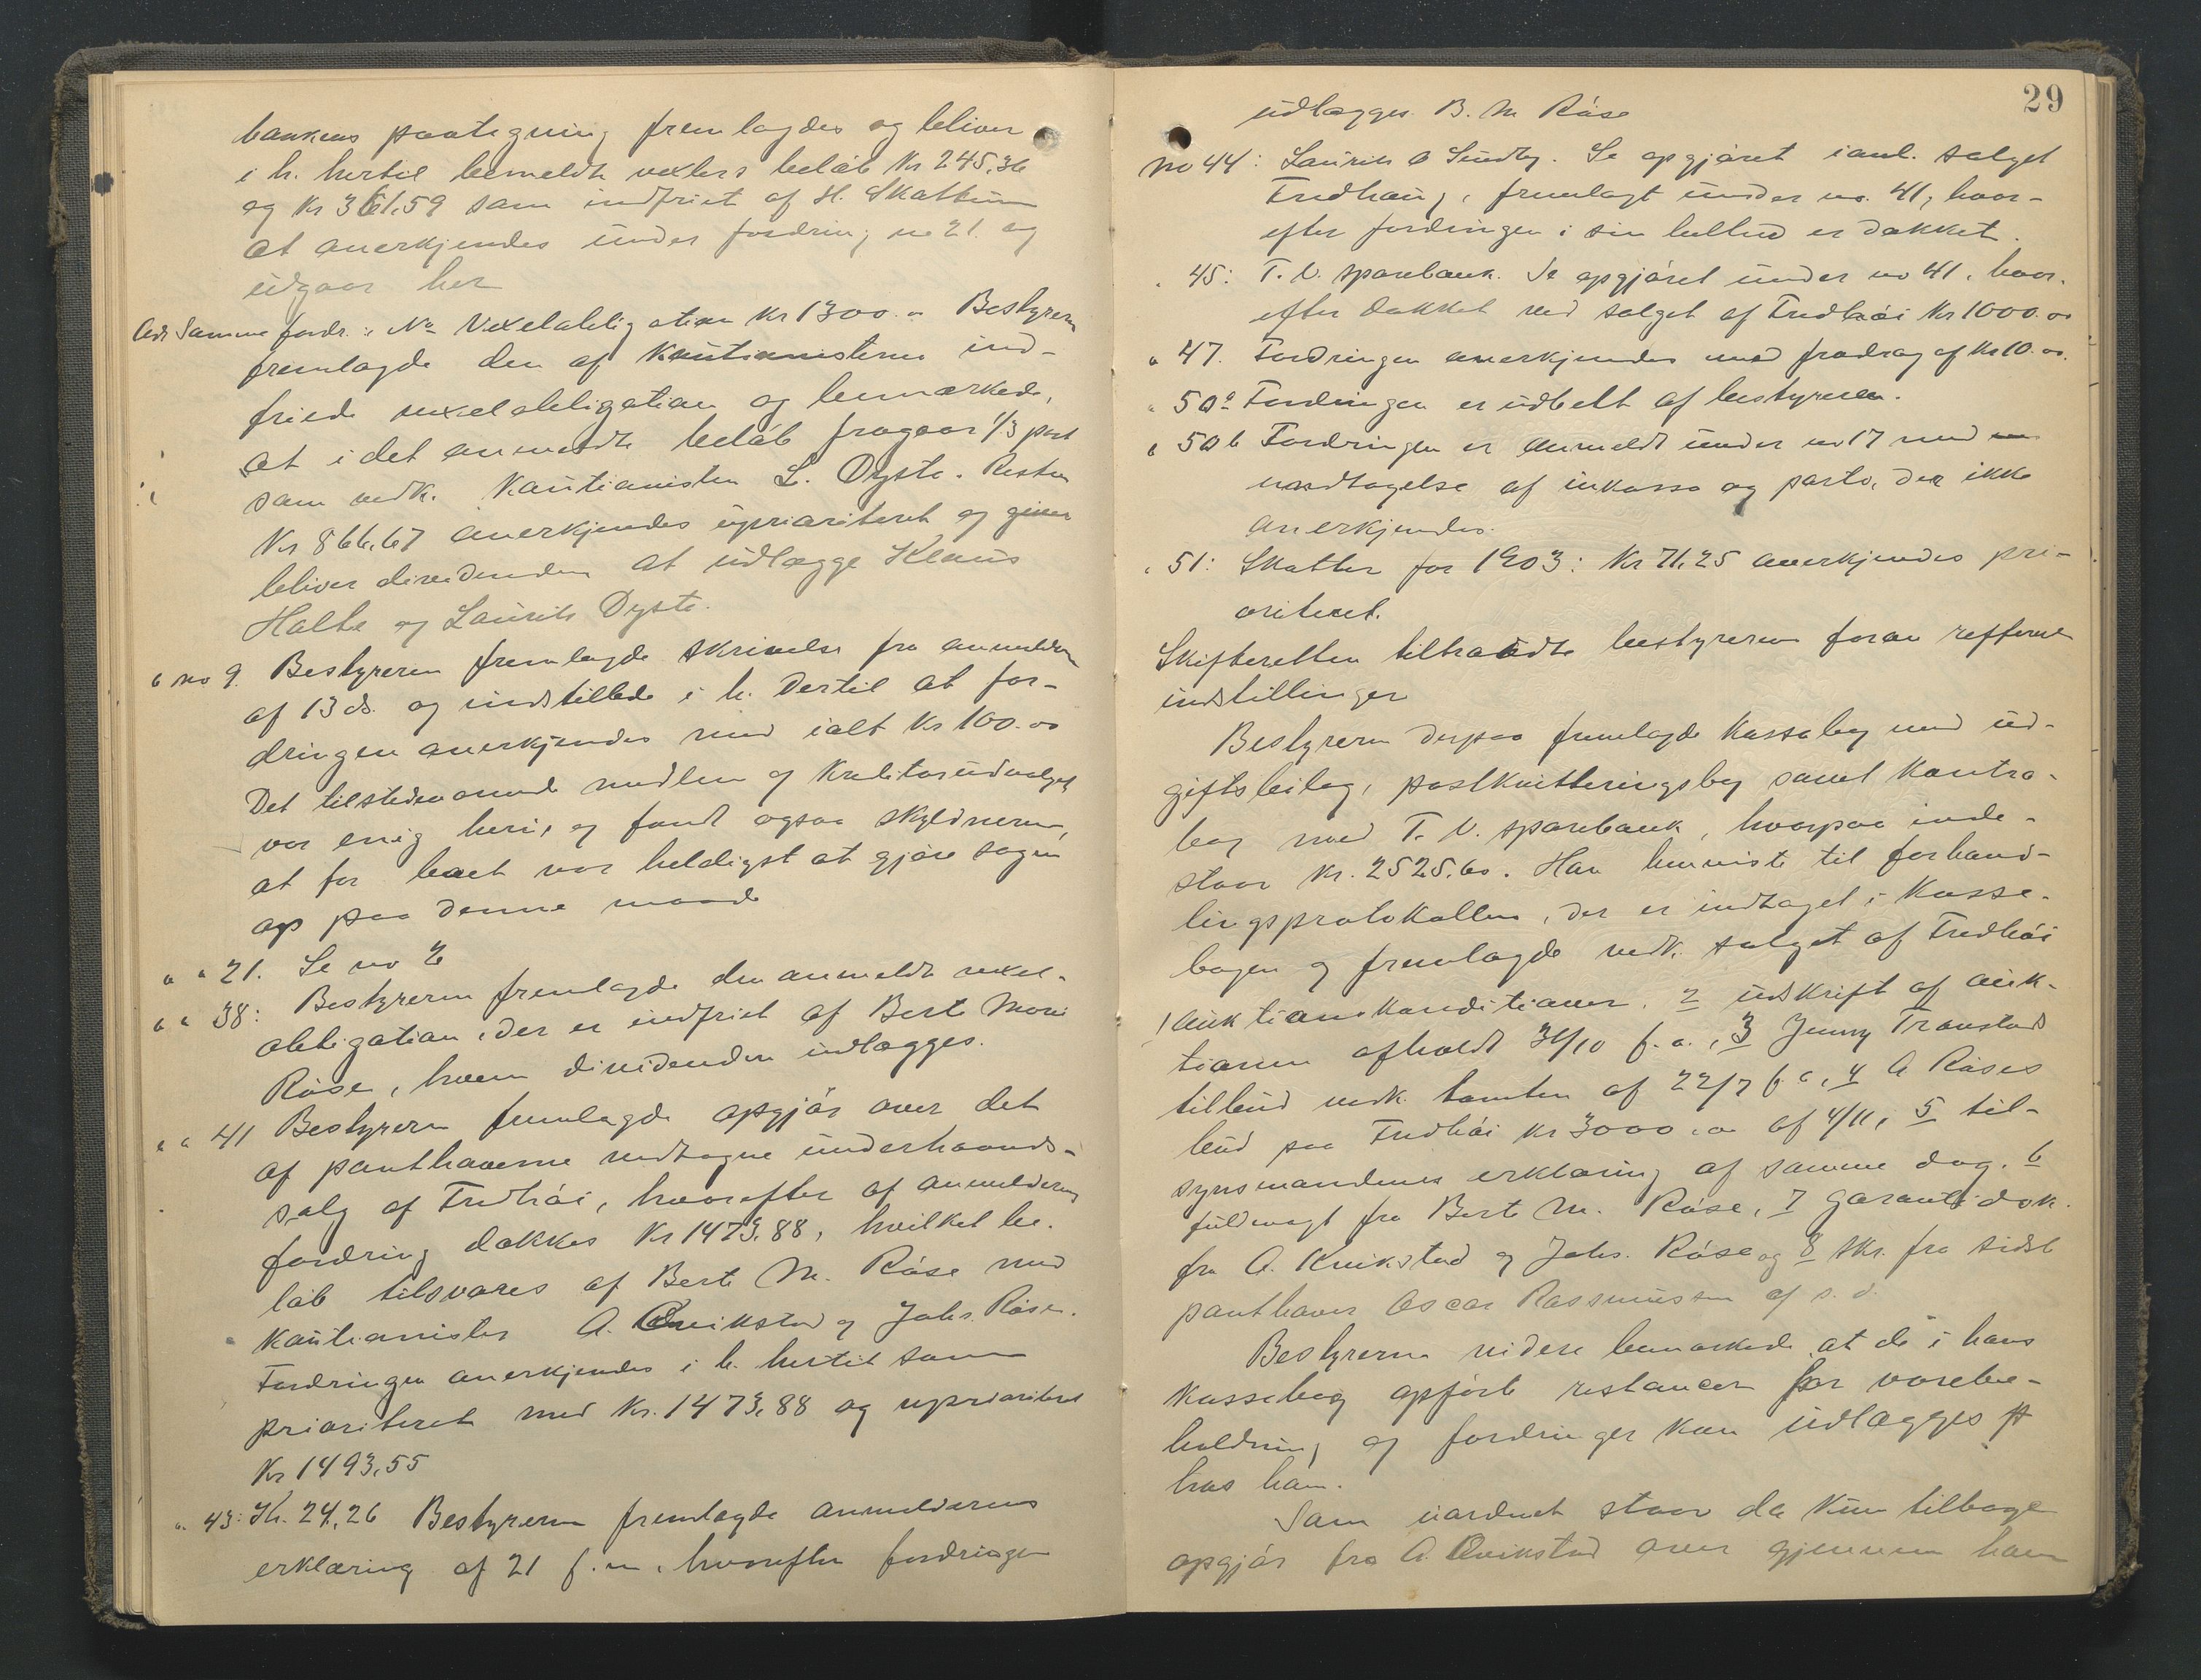 bankens paategning fremlagdes og bliver
i h. hertil bemeldte vexlers beløb Kr 245,36
og Kr 361,59 som indfriet af H. Skattum
at anerkjendes under fordring no 21. og
udgaar her
Ad Samme fordr.: Vexelobligation Kr 1300.- Bestyreren
fremlagde den af Kautionisterne ind-
friede vexelobligation og bemærkede,
at i det anmeldte beløb fragaar 1/3 part
som vedk. Kautionisten L. Dyste. Resten
Kr 866,67 anerkjendes uprioriteret og
bliver dividenden at udlægge Klaus
Halte og Laurits Dyste.
" no 9. Bestyreren fremlagde skrivelse fra anmelderen
af 13 ds. og indstillede i h. dertil at for-
dringen anerkjendes med ialt Kr 100.00
Det tilstedeværende medlem af Kreditorudvalget
var enig heri, og fandt ogsaa skyldneren,
at for boet var heldigst at gjøre sagen
op paa denne maade
" " 21. Se no
" " 38: Bestyreren fremlagde den anmeldte vexel-
obligation, der er indfriet af Berte Marie
Røise, hvem dividenden udlægges.
" " 41 Bestyreren fremlagde opgjør over det
af panthaverne vedtagne underhaands-
salg af Fredhøi, hvorefter af anmelderens
fordring dækkes Kr 1473,88, hvilket be-
løb tilsvares af Berte M. Røise med
Kautionister A. Qvikstad og Johs. Røise.
Fordringen anerkjendes i h. hertil som
prioriteret med Kr. 1473,88 og uprioriteret
Kr 1493,55
" 43: Kr. 24,26 Bestyreren fremlagde anmelderens
erklæring af 21 f.m., hvorefter fordringen
29
udlægges B. M Røise
No 44: Laurits O Sundby. Se opgjøret i anl. salget
Fredhaug, fremlagt under no. 41, hvor-
efter fordringen i sin helhed er dækket.
" 45: T. V. sparebank. Se opgjøret under no 41, hvor-
efter dækket ved salget af Fredhøi Kr 1000.00
" 47. Fordringen anerkjendes med fradrag af Kr 10.00.
" 50a Fordringen er udbetalt af bestyreren.
" 50b Fordringen er anmeldt under no 17 med
undtagelse af inkasso og porto, der ikke
anerkjendes.
" 51: Skatter for 1903: Kr 71,25 anerkjendes pri-
oriteret.
Skifteretten tiltraadte bestyrerens foran refferete
indstillinger
Bestyreren derpaa fremlagde Kassabog med ud-
giftsbilag, postkvitteringsbog samt Kontra-
bog med T. V. sparebank, hvorpaa inde-
staar Kr. 2525,60. Han henviste til forhand-
lingsprotokollen, der er indtaget i Kasse-
bogen og fremlagde vedk. salget af Fredhøi
1 auktionskonditioner, 2 udskrift af auk-
tionen afholdt 31/10 f.a., 3 Jenny Transtads
tilbud vedk. tomten af 22/7 f a, 4 A Røises
bud paa Fredhøi Kr 3000.00 af 4/11, 5 til-
synsmændenes erklæring af samme dag, 6
fuldmagt fra Berte M. Røise, 7 garantidok.
fra A. Kvikstad og Johs. Røise og 8 skr. fra sidste
panthaver Oscar Rasmussen af s. d.
Bestyreren videre bemærkede, at de i hans
Kassebog opførte restancer for varebe-
holdning og fordringer kan udlægges
hos ham.
Som uordnet staar da kun tilbage
opgjør fra A. Qvikstad over gjennem ham